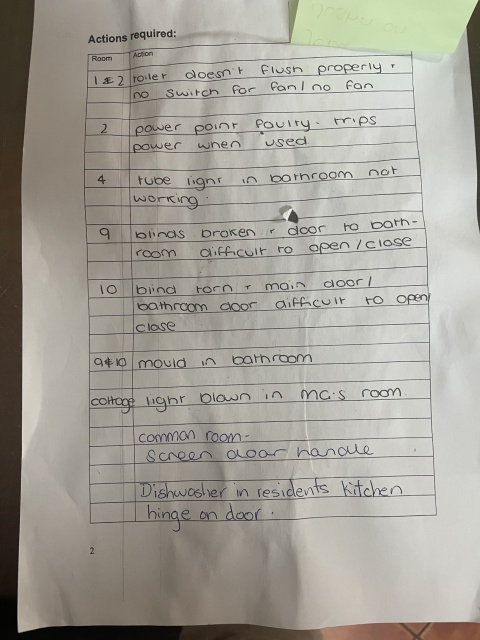 Actions required:
Room Action
1 & 2 toilet doesn't flush properly +
no switch for fan/no fan
2 power point faulty - trips
power when used
4 tube light in bathroom not
working.
9 blinds broken + door to bath-
room difficult to open/close
10 blind torn + main door/
bathroom door difficult to open/
close
9 & 10 mould in bathroom
cottage light blown in room.
common room -
screen door handle
Dishwasher in residents kitchen
hinge on door.
2